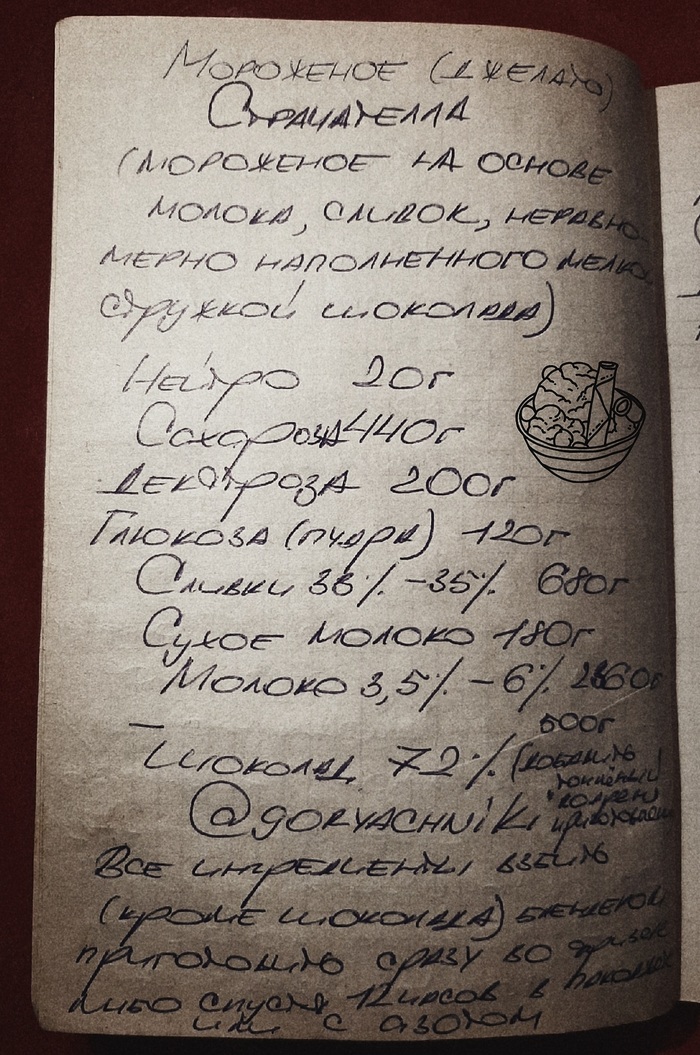 Мороженое (джелато)
Страчателла
(мороженое на основе
молока, сливок, неравно-
мерно наполненного мелкой
стружкой шоколада)
Нейтро 20г
Сахароза 440г
Декстроза 200г
Глюкоза (пудра) 120г
Сливки 33% -35% 680г
Сухое молоко 180г
Молоко 3,5% - 6%
500г
Шоколад 72% (добавить
топлёный
во время
приготовления
@goryachniki
Все ингредиенты взбить
(кроме шоколада) блендером
приготовить сразу во фризере
либо спустя 12 часов в
или с азотом